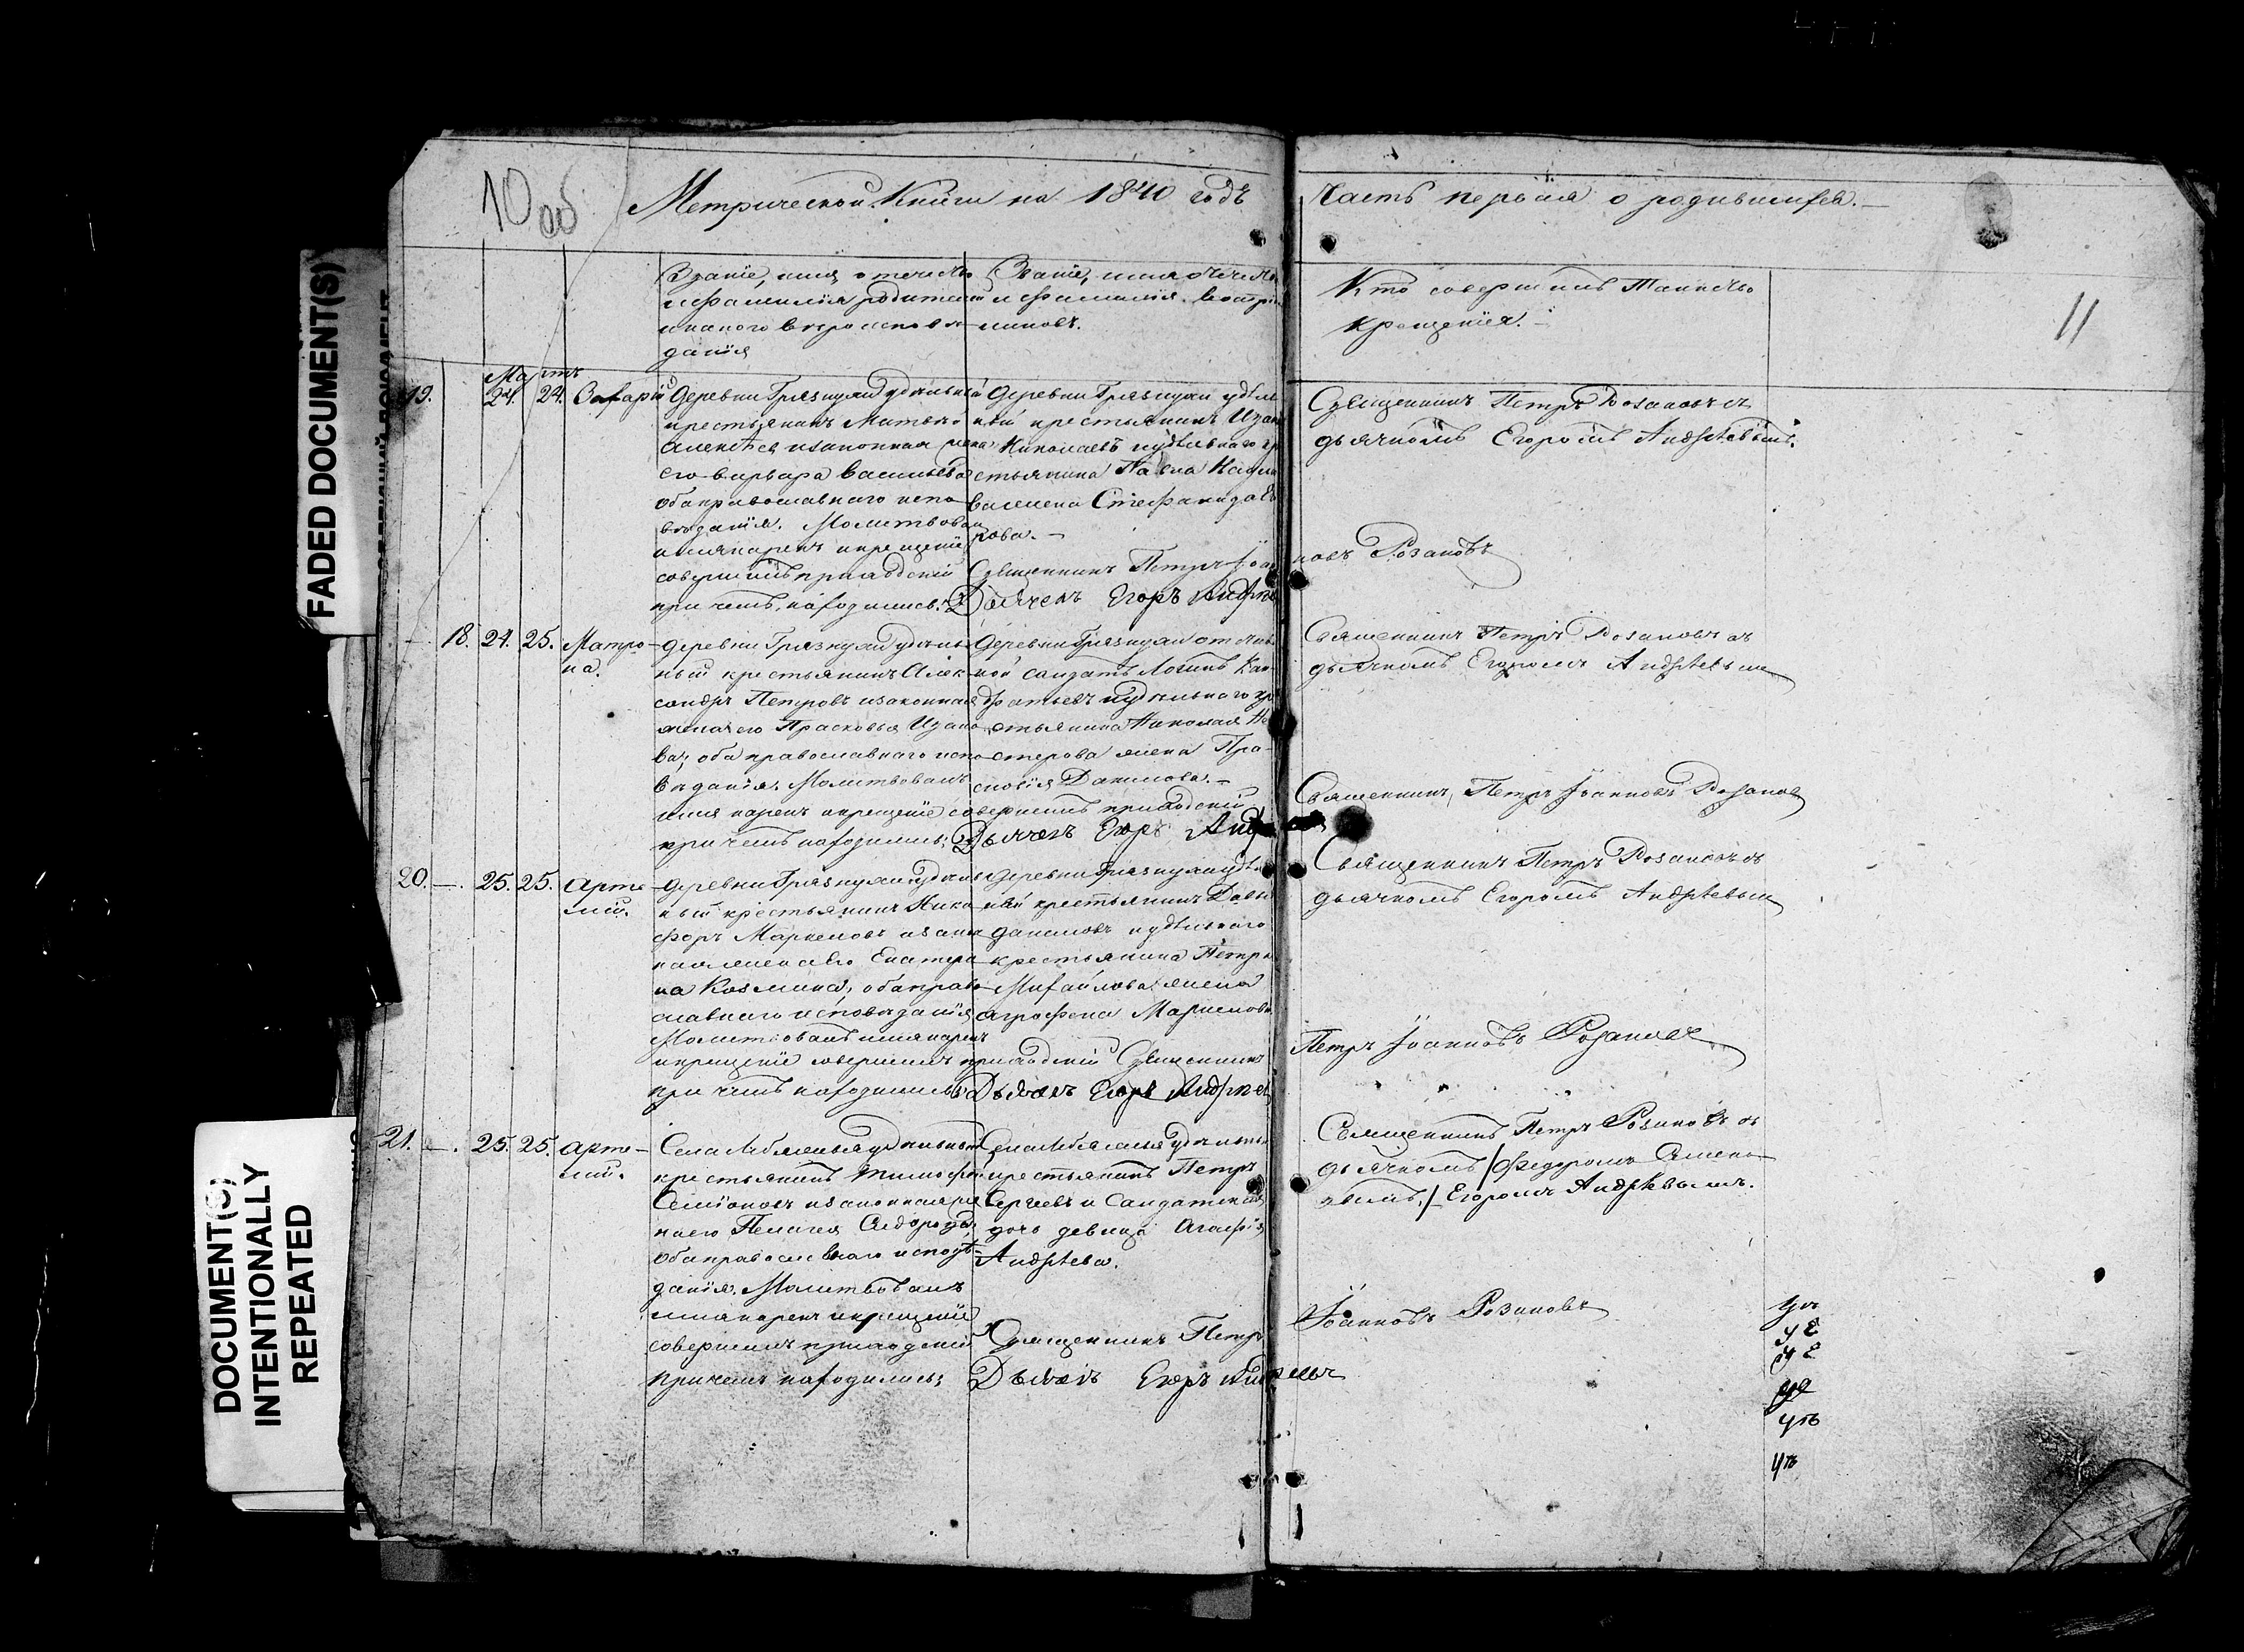 10 об
Метрической Книги на 1840 годъ
Часть первая о родившихся.
Званіе, имя, отечество
и фамилія родителей
и какого вероисповѣ-
данія
Званіе, имя отечество
и фамилія воспріе-
миковъ.
Кто совершилъ Таинство
крещенія.
11
FADED DOCUMENT(S)
DOCUMENT(S)
INTENTIONALLY
REPEATED
Мартъ
19. 24. 24. Захарій
Деревни Грязнухи удѣльный
крестьянинъ
Алексѣевъ и законная жена
его Варвара Васильева
оба православнаго испо-
вѣданія. Молитвовалъ
имя нарекъ и крещеніе
совершилъ приходскій
при чемъ находились:
Деревни Грязнухи удѣль
ный крестьянинъ Иван
Николаевъ и удѣльнаго кр
стьянина Павла
ва жена Стефанида
кова.
Священникъ Петръ Іоан
новъ Розановъ
Дьячекъ Егоръ Андрѣ
Священникъ Петръ Розановъ съ
дьячкомъ Егоромъ Андрѣевымъ.
18. 24. 25. Матро-
на.
Деревни Грязнухи удѣль-
ный крестьянинъ Алек-
сандръ Петровъ и законная
жена его Прасковья Ивано
ва; оба православнаго испо
вѣданія. Молитвовалъ
имя нарекъ и крещеніе совершилъ приходскій
при чемъ находились;
Деревни Грязнухи отстав
ной солдатъ Логинъ Кон-
дратьевъ и удѣльнаго кр
стьянина Николая Не
стерова жена Пра-
сковія Данилова.
Священникъ Петръ Іоанновъ Розановъ
Дьячекъ Егоръ Анд
Священникъ Петръ Розановъ съ
дьячкомъ Егоромъ Андрѣевым
20. —. 25. 25. Арте-
мій.
Деревни Грязнухи удѣль
ный крестьянинъ Ники
форъ Маркеловъ и закон
ная жена его Екатери
на Козмина; оба право
славнаго исповѣданія
Молитвовалъ имя нарекъ
и крещеніе совершилъ приходскій Священникъ
при чемъ находились
Деревни Грязнухи удѣ
ный крестьянинъ Давы
Даниловъ и удѣльнаго
крестьянина Петра
Михайлова жена
Агрофена Маркелова
Петръ Іоанновъ Розановъ
Дьячекъ Егоръ Андрѣев
Священникъ Петръ Розановъ съ
дьячкомъ Егоромъ Андрѣевым
21. —. 25. 25. Арте-
мій.
Села Лебяжья удѣльный
крестьянинъ Тимофѣй
Симіоновъ и законная же
на его Пелагея Сидорова,
оба православнаго исповѣ-
данія. Молитвовалъ
имя нарекъ и крещеніе
совершилъ приходскій
при чемъ находились;
Села Лебяжья удѣльны
крестьянинъ Петръ
Сергѣевъ и Солдатская
дочь девица Агафія
Андрѣева.
Священникъ Петръ
Іоанновъ Розановъ
Дьячекъ Егоръ Андреевъ
Священникъ Петръ Розановъ съ
дьячкомъ / Федоромъ
/ Егоромъ Андрѣевымъ.